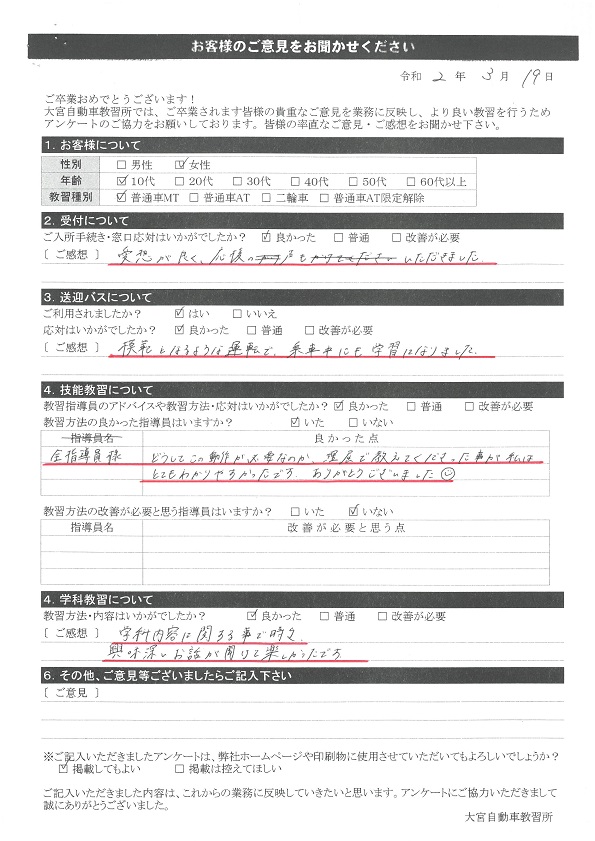 お客様のご意見をお聞かせください
令和 2 年 3 月 19 日
ご卒業おめでとうございます！
大宮自動車教習所では、ご卒業されます皆様の貴重なご意見を業務に反映し、より良い教習を行うため
アンケートのご協力をお願いしております。皆様の率直なご意見・ご感想をお聞かせ下さい。
1. お客様について
性別 □ 男性 ☑ 女性
年齢 ☑ 10代 □ 20代 □ 30代 □ 40代 □ 50代 □ 60代以上
教習種別 ☑ 普通車MT □ 普通車AT □ 二輪車 □ 普通車AT限定解除
2. 受付について
ご入所手続き・窓口応対はいかがでしたか？ ☑ 良かった □ 普通 □ 改善が必要
［ ご感想 ］ 愛想が良く、応援の いただきました。
3. 送迎バスについて
ご利用されましたか？ ☑ はい □ いいえ
応対はいかがでしたか？ ☑ 良かった □ 普通 □ 改善が必要
［ ご感想 ］ 模範となるような運転で、乗車中にも学習になりました。
4. 技能教習について
教習指導員のアドバイスや教習方法・応対はいかがでしたか？ ☑ 良かった □ 普通 □ 改善が必要
教習方法の良かった指導員はいますか？ ☑ いた □ いない
指導員名 良かった点
全指導員様 どうしてこの動作が必要なのか、理屈で教えてくださった事が私は
とてもわかりやすかったです。ありがとうございました☺
教習方法の改善が必要と思う指導員はいますか？ □ いた ☑ いない
指導員名 改善が必要と思う点
4. 学科教習について
教習方法・内容はいかがでしたか？ ☑ 良かった □ 普通 □ 改善が必要
［ ご感想 ］ 学科内容に関する事で時々、
興味深いお話が聞けて楽しかったです。
6. その他、ご意見等ございましたらご記入下さい
［ ご意見 ］
※ご記入いただきましたアンケートは、弊社ホームページや印刷物に使用させていただいてもよろしいでしょうか？
☑ 掲載してもよい □ 掲載は控えてほしい
ご記入いただきました内容は、これからの業務に反映していきたいと思います。アンケートにご協力いただきまして
誠にありがとうございました。
大宮自動車教習所